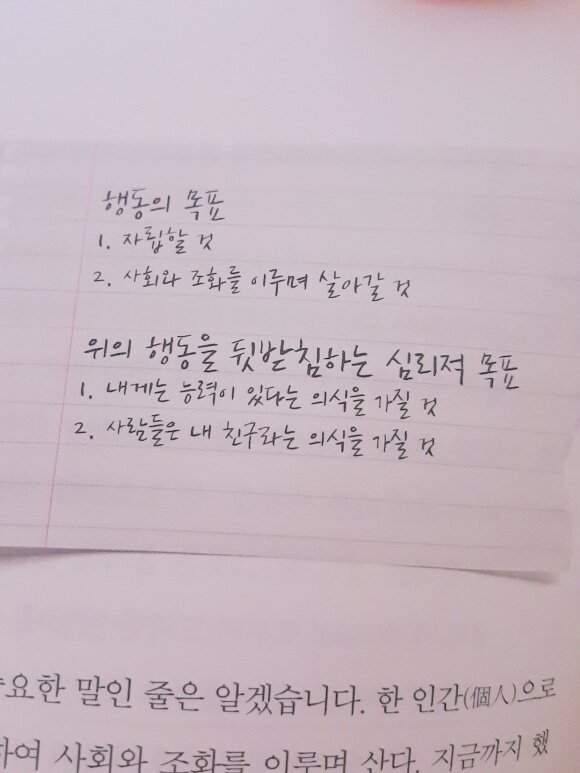 행동의 목표
1. 자립할 것
2. 사회와 조화를 이루며 살아갈 것
위의 행동을 뒷받침하는 심리적 목표
1. 내게는 능력이 있다는 의식을 가질 것
2. 사람들은 내 친구라는 의식을 가질 것
말인 줄은 알겠습니다. 한 인간(個人)으로
사회와 조화를 이루며 산다. 지금까지 했